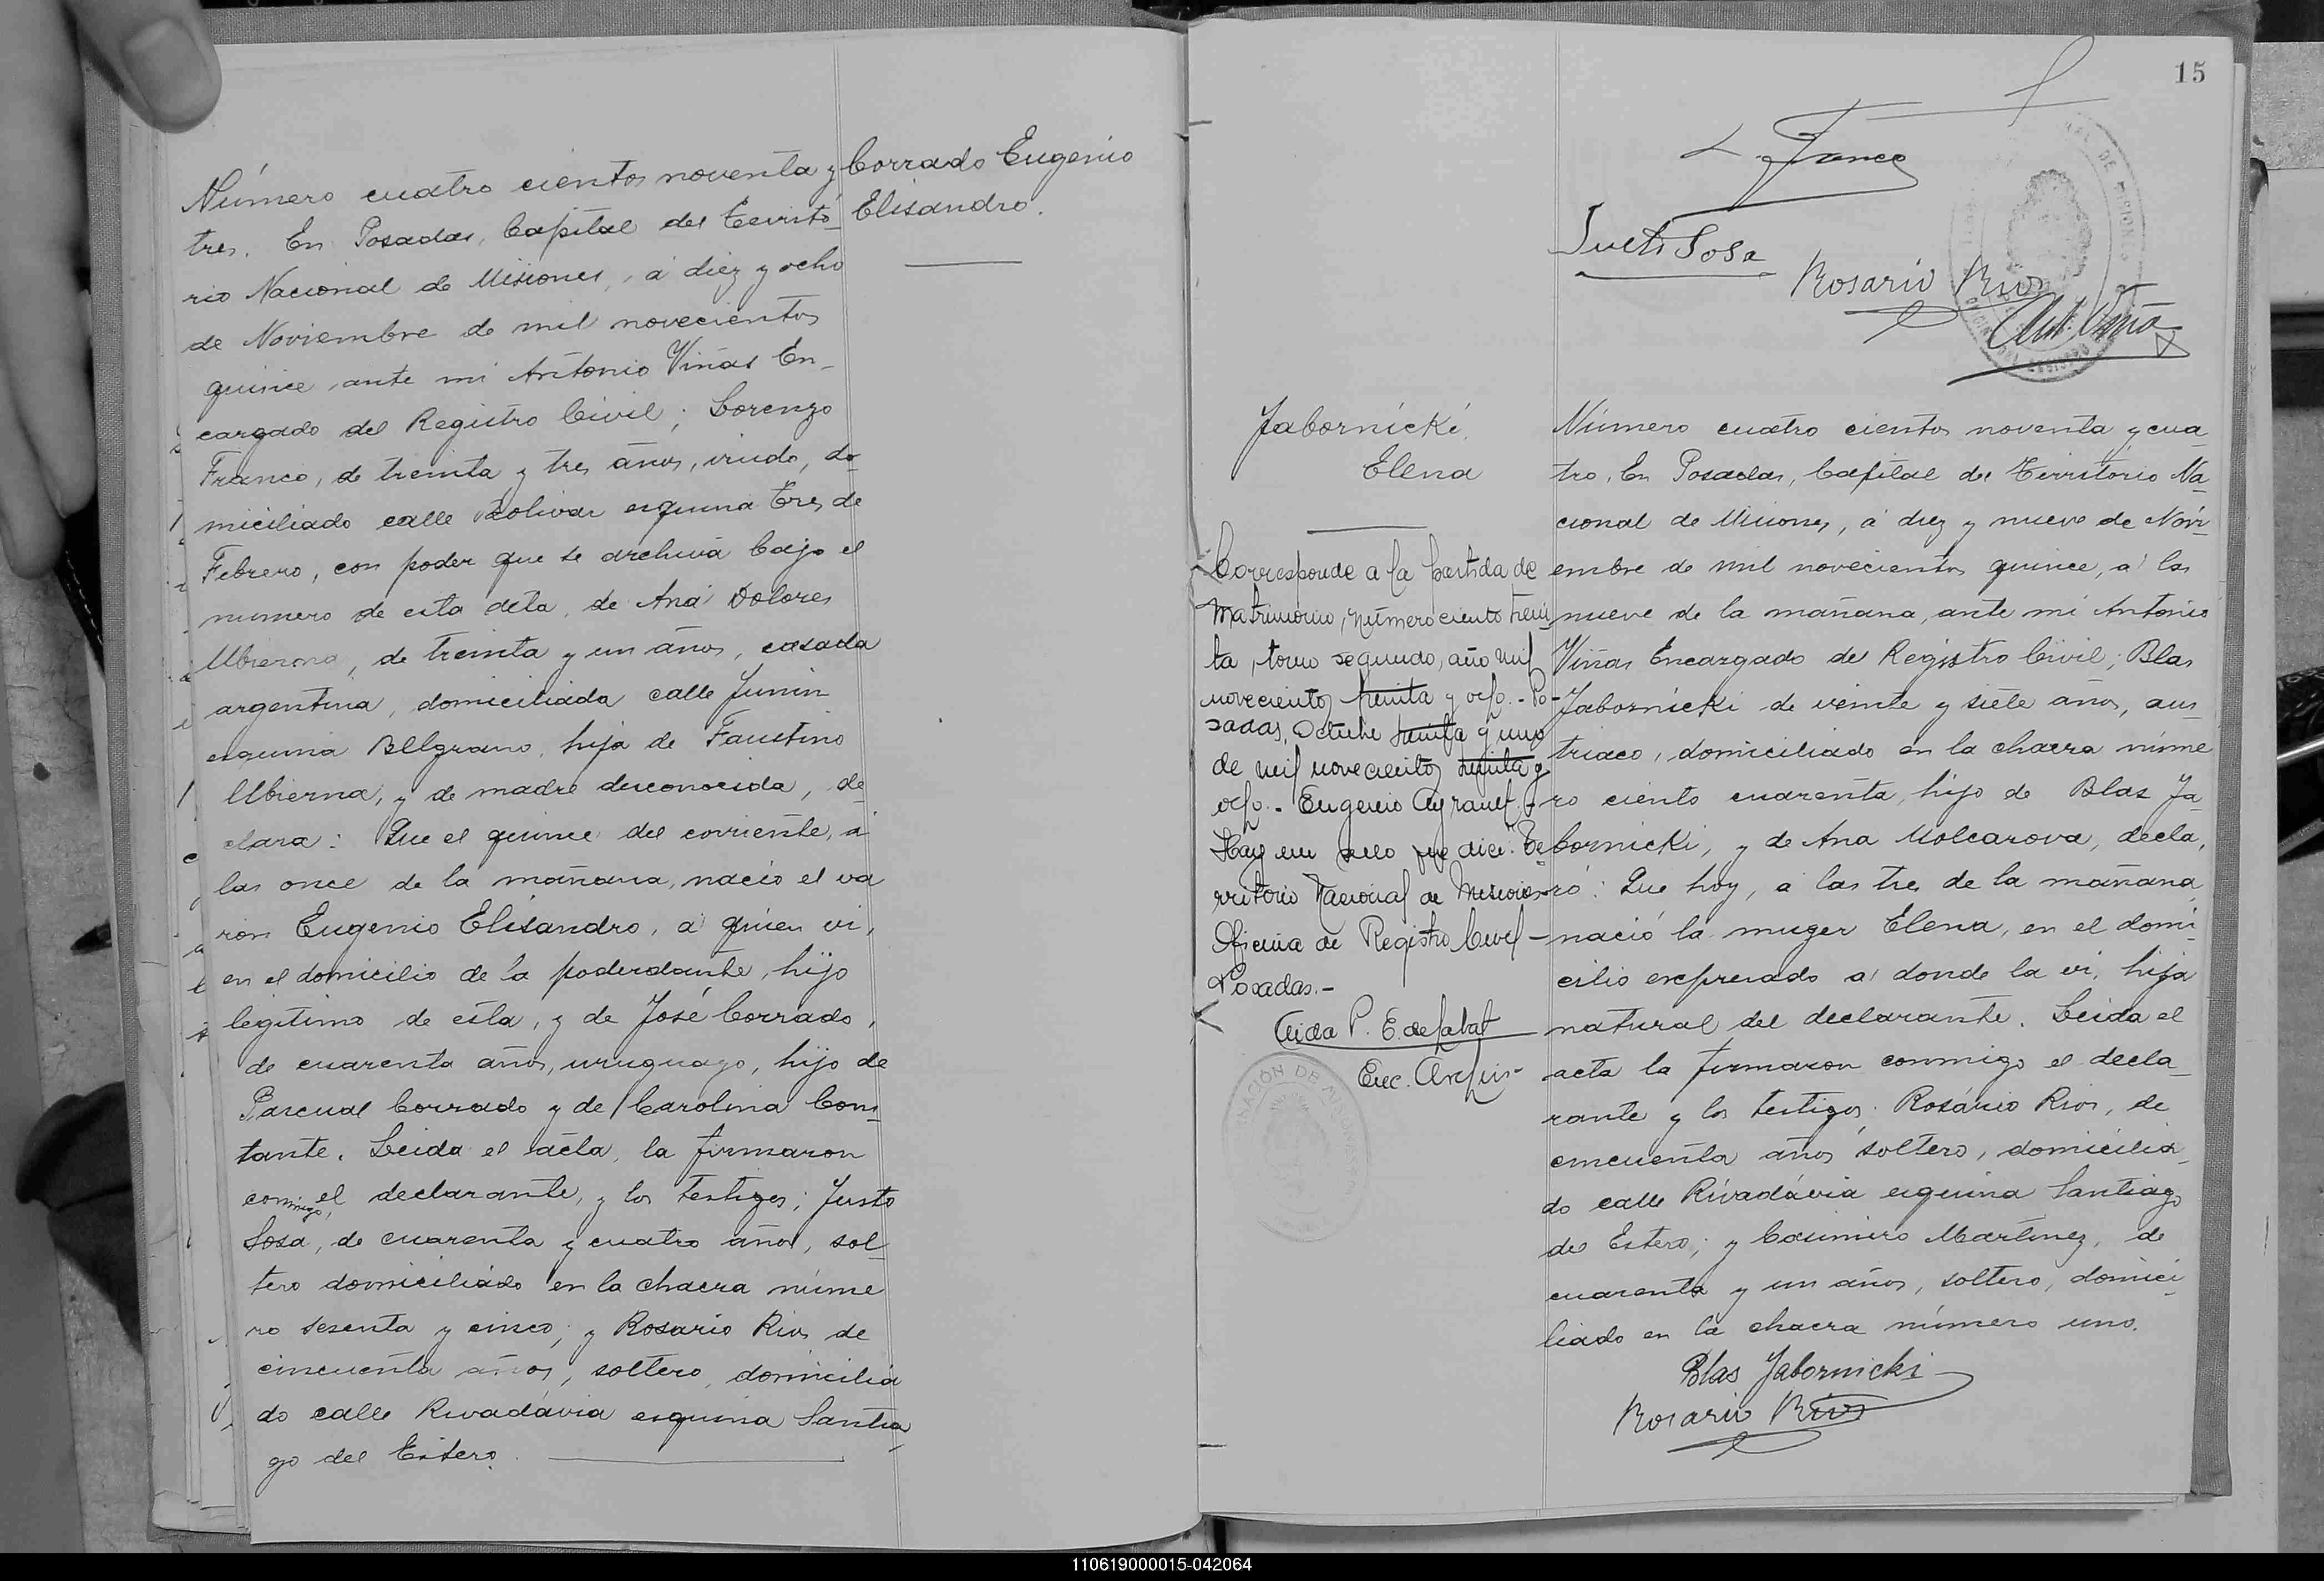 Número cuatro cientos noventa y
tres. En Posadas, Capital del Territo-
rio Nacional de Misiones, á diez y ocho
de Noviembre de mil novecientos
quince, ante mi Antonio Viñas En-
cargado del Registro Civil; Lorenzo
Franco, de treinta y tres años, viudo, do-
miciliado calle Bolivar esquina tres de
Febrero, con poder que se archiva bajo el
numero de esta acta, de Ana Dolores
Ubierna, de treinta y un años, casada
argentina, domiciliada calle Junin
esquina Belgrano, hija de Faustino
Ubierna, y de madre desconocida, de-
clara: Que el quince del corriente, á
las once de la mañana, nació el va
ron Eugenio Elisandro, a quien vi,
en el domicilio de la poderdante, hijo
legitimo de esta, y de José Corrado,
de cuarenta años, uruguayo, hijo de
Pascual Corrado y de Carolina Cons-
tante. Leida el acta, la firmaron
conmigo, el declarante, y los testigos; Justo
Sosa, de cuarenta y cuatro años, sol-
tero domiciliado en la chacra núme
ro sesenta y cinco; y Rosario Rios de
cincuenta años, soltero, domicilia
do calle Rivadávia esquina Santia-
go del Estero.
Corrado Eugenio
Elisandro.
15
L. Franco
Justo Sosa
Rosario Rios
Ant. Viña
Jabornicki
Elena
Corresponde a la partida de
matrimonio, número ciento trein-
ta, tomo segundo, año mil
novecientos treinta y ocho.- Po-
sadas, Octubre treinta y uno
de mil novecientos treinta y
ocho.- Eugenio
Hay un sello que dice: Te-
rritorio Nacional de Misiones
Oficina de Registro Civil -
Posadas.-
Número cuatro cientos noventa y cua
tro. En Posadas, Capital del Territorio Na-
cional de Misiones, á diez y nueve de Novi-
embre de mil novecientos quince, a las
nueve de la mañana, ante mi Antonio
Viñas Encargado del Registro Civil; Blas
Jabornicki de veinte y siete años, aus
triaco, domiciliado en la chacra núme
ro ciento cuarenta, hijo de Blas Ja
bornicki, y de Ana Molcarova, decla,
ró: Que hoy, a las tres de la mañana,
nació la muger Elena, en el domi-
cilio expresado a donde la vi, hija
natural del declarante. Leida el
acta la firmaron conmigo el decla-
rante y los testigos; Rosário Rios, de
cincuenta años soltero, domicilia-
do calle Rivadávia esquina Santiago
del Estero; y Casimiro Martinez, de
cuarenta y un años, soltero, domici-
liado en la chacra número uno.
Blas Jabornicki
Rosario Rios
110619000015-042064